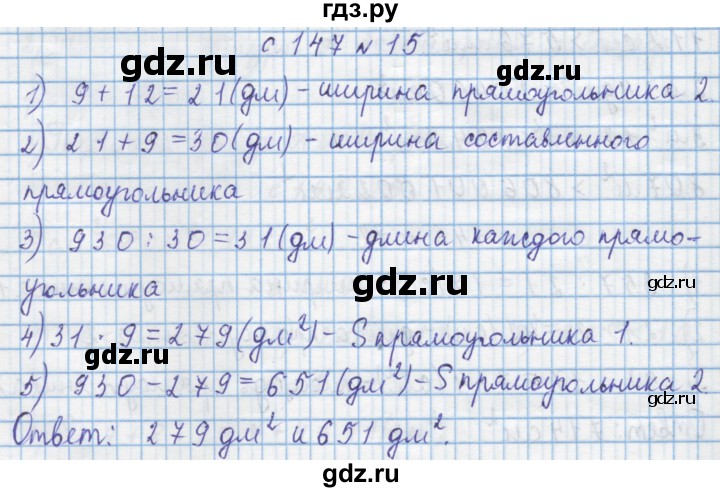 гдз.ру
с 147 № 15
1) 9 + 12 = 21 (дм) - ширина прямоугольника 2.
2) 21 + 9 = 30 (дм) - ширина составленного
прямоугольника
3) 930 : 30 = 31 (дм) - длина каждого прямо-
угольника
4) 31 · 9 = 279 (дм²) - S прямоугольника 1.
5) 930 - 279 = 651 (дм²) - S прямоугольника 2
Ответ: 279 дм² и 651 дм².
gdz.ru
gdz.ru
gdz.ru
gdz.ru
gdz.ru
gdz.ru
gdz.ru